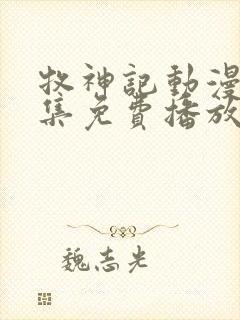 牧神記動漫
集免費播放
魏志光